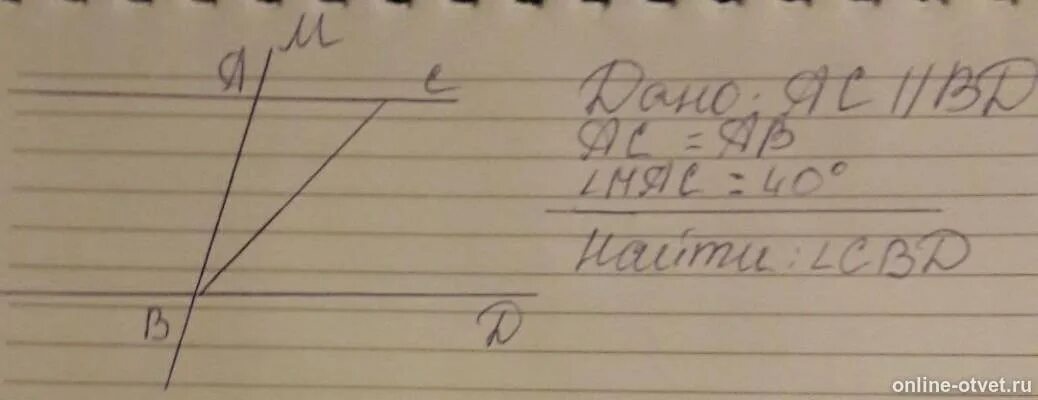 M
A
C
Дано: AC || BD
AC = AB
∠MAC = 40°
Найти: ∠CBD
B
D
online-otvet.ru